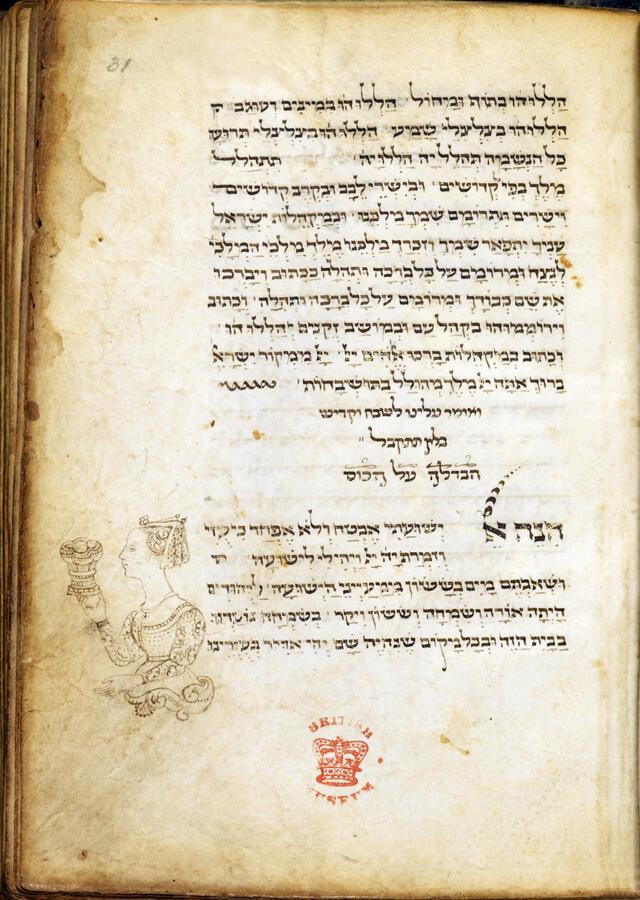 31
הללוהו בתוף ומחול הללוהו במינים ועוגב ה
הללוהו בצלצלי שמע הללוהו בצלצלי תרועה
כל הנשמה תהלל יה הללויה תתהלל
מלך בפי קדושים ובישרי לבב ובקרב קדושים
וישרים תתרומם שמך מלכנו ובמקהלות ישראל
עמך יתפאר שמך וזכרך מלכנו מלך מלכי המלכי
לנצח ומרומם על כל ברכה ותהלה ככתוב ויברכו
את שם כבודך ומרומם על כל ברכה ותהלה וכתוב
וירוממוהו בקהל עם ובמושב זקנים יהללוהו
וכתוב במקהלות ברכו אלהים ממקור ישרא
ברוך אתה מלך מהולל בתושבחות
ואומר עלינו לשבח וקדיש
בלא תתקבל
הבדלה על הכוס
הנה א ישועתי אבטח ולא אפחד כי עזי
וזמרת יה ויהי לי לישועה
ושאבתם מים בששון ממעייני הישועה ליהודים
היתה אורה ושמחה וששון ויקר בשמחה
בבית הזה ובכל מקום שנהיה שם יהי אדיר בעזרינו
BRITISH
MUSEUM